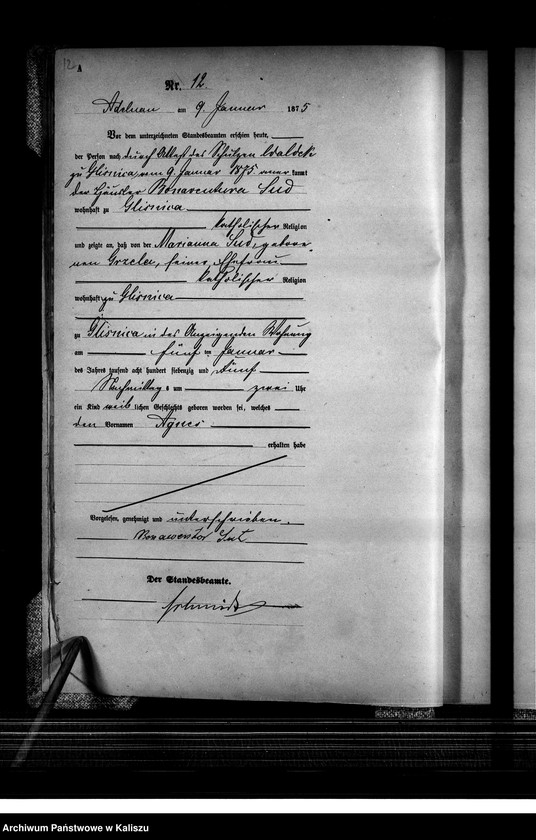 12
A
Nr. 12.
Adelnau am 9. Januar 1875
Vor dem unterzeichneten Standesbeamten erschien heute,
der Person nach durch Attest des Schulzen Walock
zu Glisnica vom 9. Januar 1875 aner kannt
der Häusler Bonaventura Sud
wohnhaft zu Glisnica
katholischer Religion
und zeigte an, daß von der Marianna Sud, gebore-
nen Grzela, seiner Ehefrau
katholischer Religion
wohnhaft zu Glisnica
zu Glisnica in des Anzeigenden Wohnung
am fünf ten Januar
des Jahres tausend acht hundert siebenzig und fünf
Nachmittag s um zwei Uhr
ein Kind weib lichen Geschlechts geboren worden sei, welches
den Vornamen Agnes
erhalten habe
Vorgelesen, genehmigt und unterschrieben.
Sut
Der Standesbeamte.
Schmidt
Archiwum Państwowe w Kaliszu